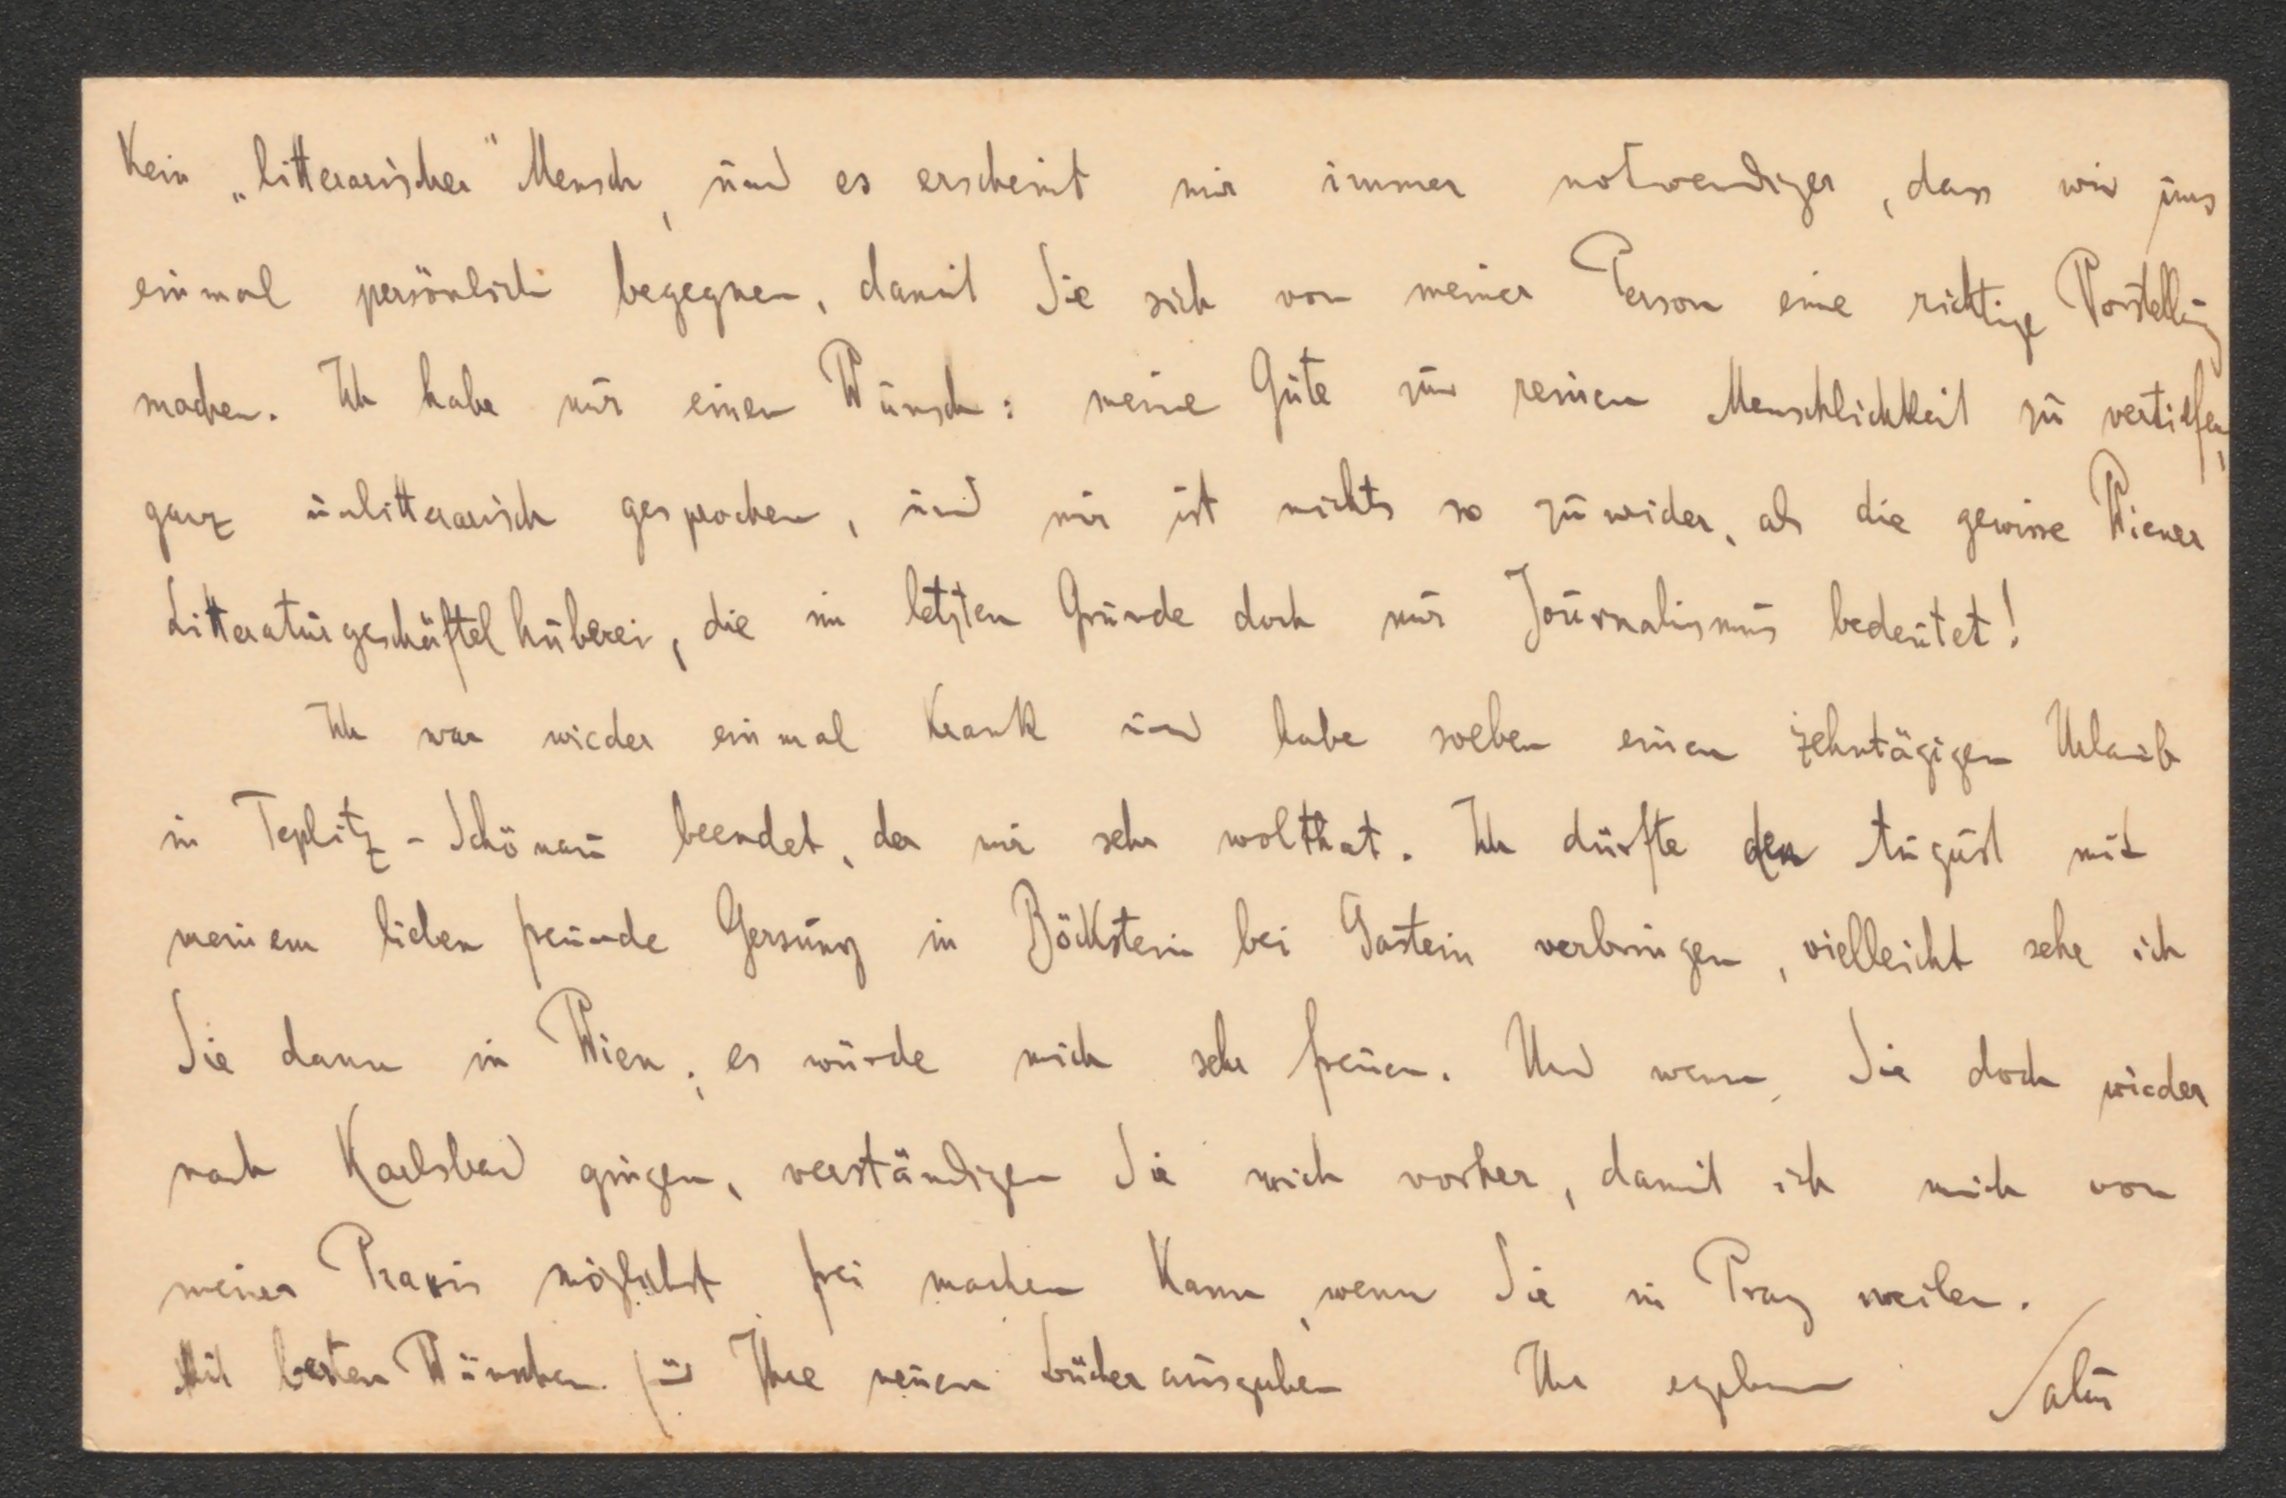 Kein „litterarischer" Mensch, und es erscheint mir immer notwendiger, dass wir uns
einmal persönlich begegnen, damit Sie sich von meiner Person eine richtige Vorstellung
machen. Ich habe nur einen Wunsch: meine Güte zur reinen Menschlichkeit zu vertiefen,
ganz unlitterarisch gesprochen, und mir ist nichts so zuwider, als die gewisse Wiener
Litteraturgeschäftelhuberei, die im letzten Grunde doch nur Journalismus bedeutet!
Ich war wieder einmal krank und habe soeben einen zehntägigen Urlaub
in Teplitz-Schönau beendet, der mir sehr wolthat. Ich dürfte den August mit
meinem lieben Freunde Gersuny in Böckstein bei Gastein verbringen, vielleicht sehe ich
Sie dann in Wien; es würde mich sehr freuen. Und wenn Sie doch wieder
nach Karlsbad gingen, verständigen Sie mich vorher, damit ich mich von
meiner Praxis möglichst frei machen kann, wenn Sie in Prag weilen.
Mit besten Wünschen für Ihre neuen Bücherausgaben Ihr ergebener Salus